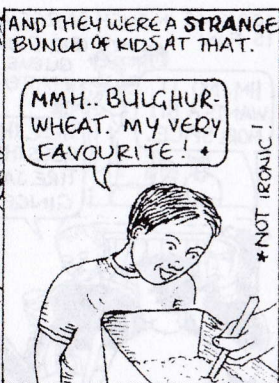 AND THEY WERE A STRANGE
BUNCH OF KIDS AT THAT.
MMH.. BULGHUR-
WHEAT. MY VERY
FAVOURITE! *
* NOT IRONIC!